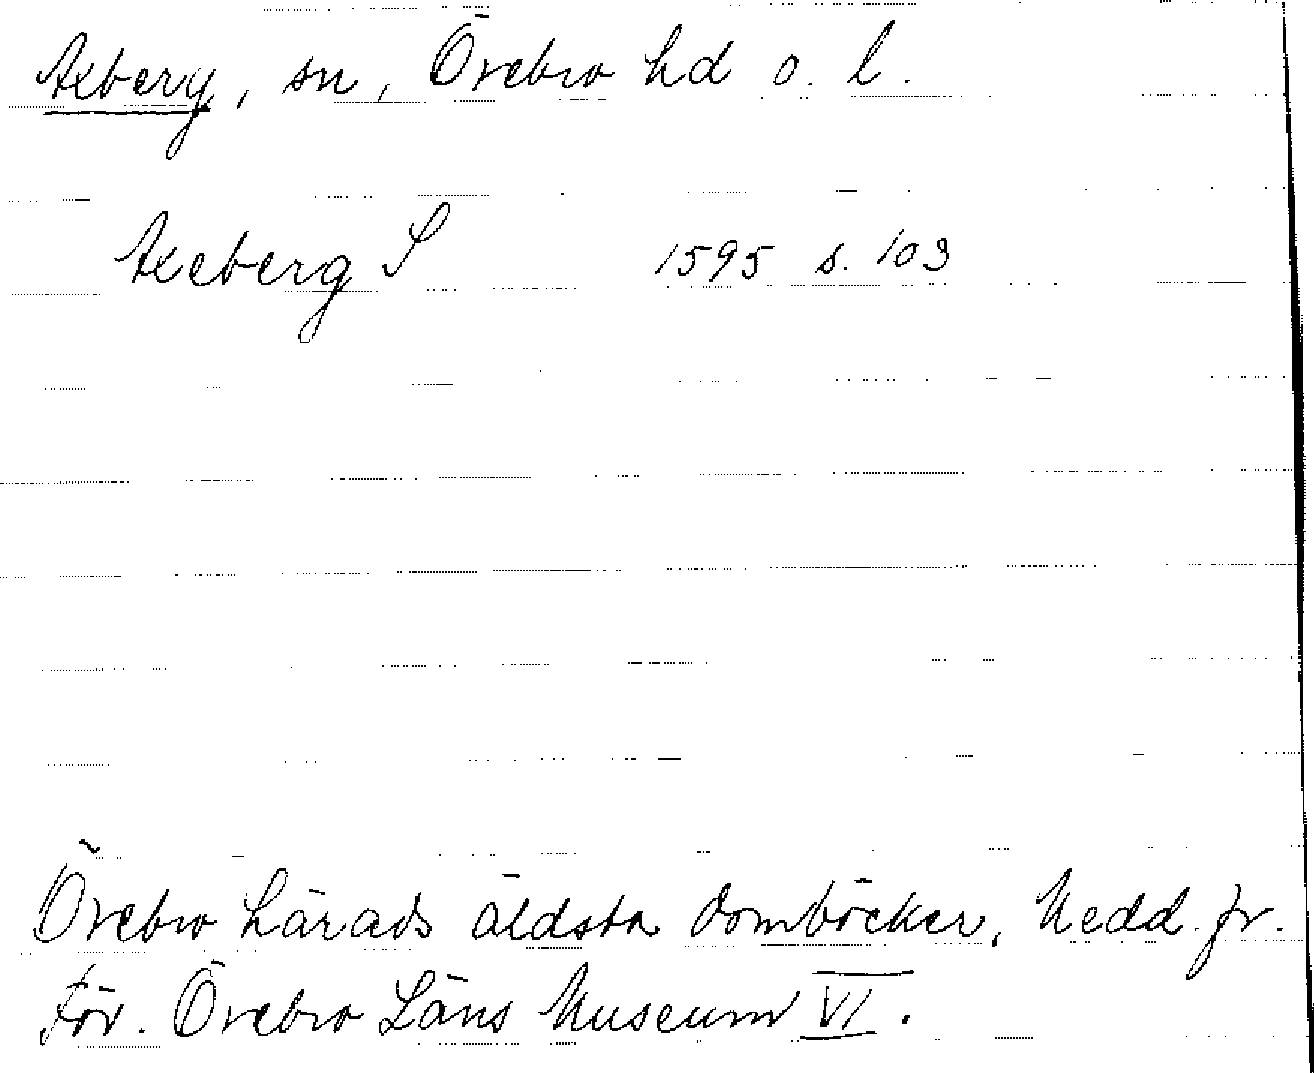 Axberg, sn, Örebro hd o. l.
Axeberg S 1595 s. 103
Örebro härads äldsta domböcker, Medd. fr.
För. Örebro Läns Museum VI.